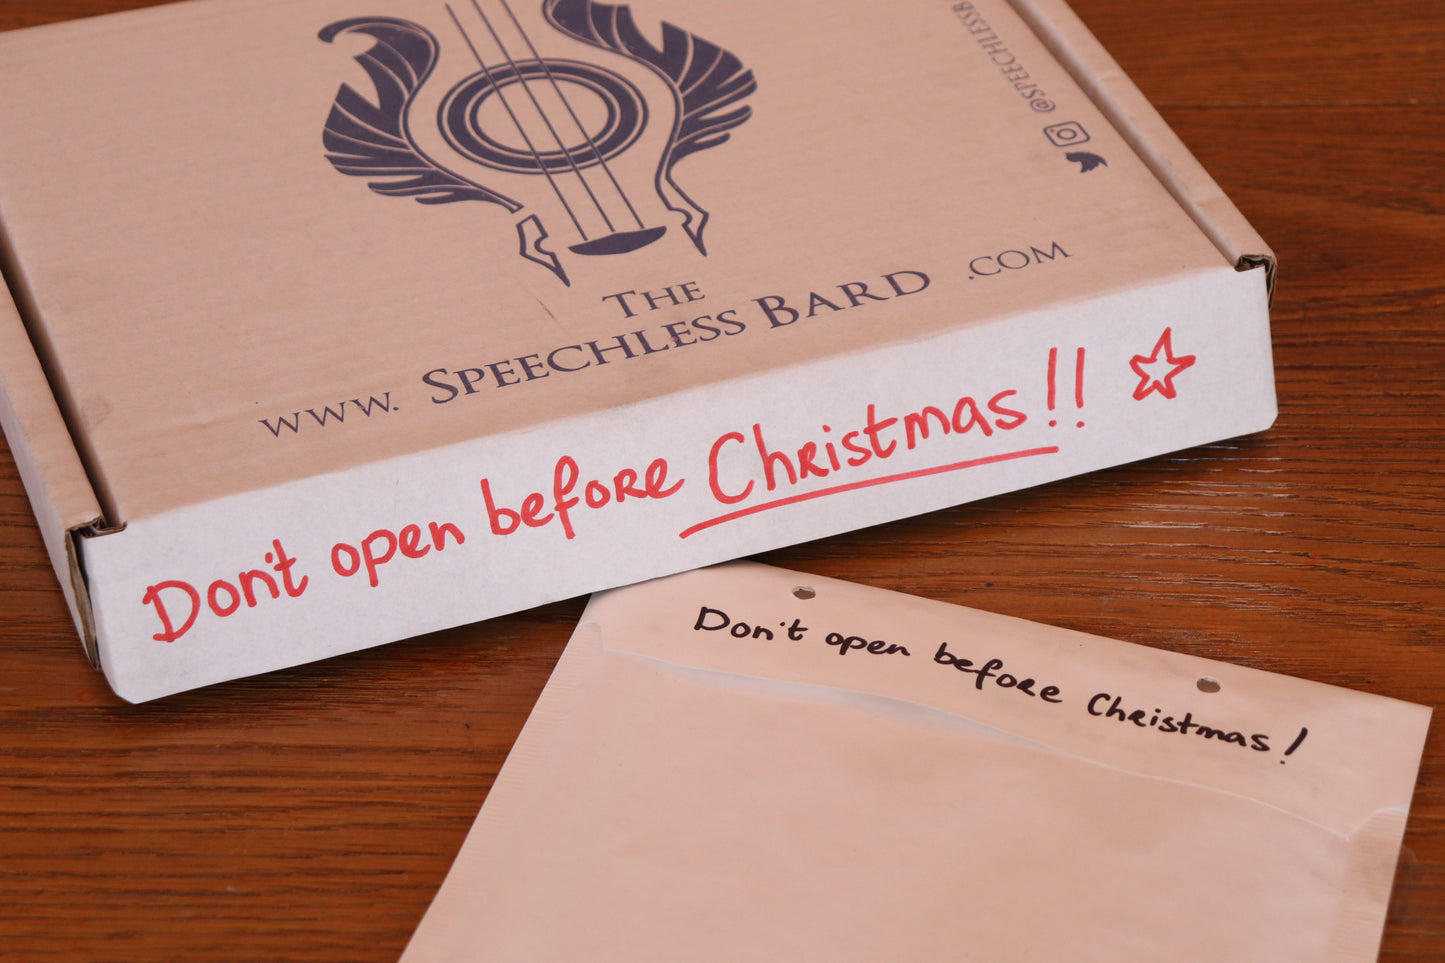 @SPEECHLESSB
THE
WWW. SPEECHLESS BARD .COM
Don't open before Christmas!!
Don't open before Christmas!